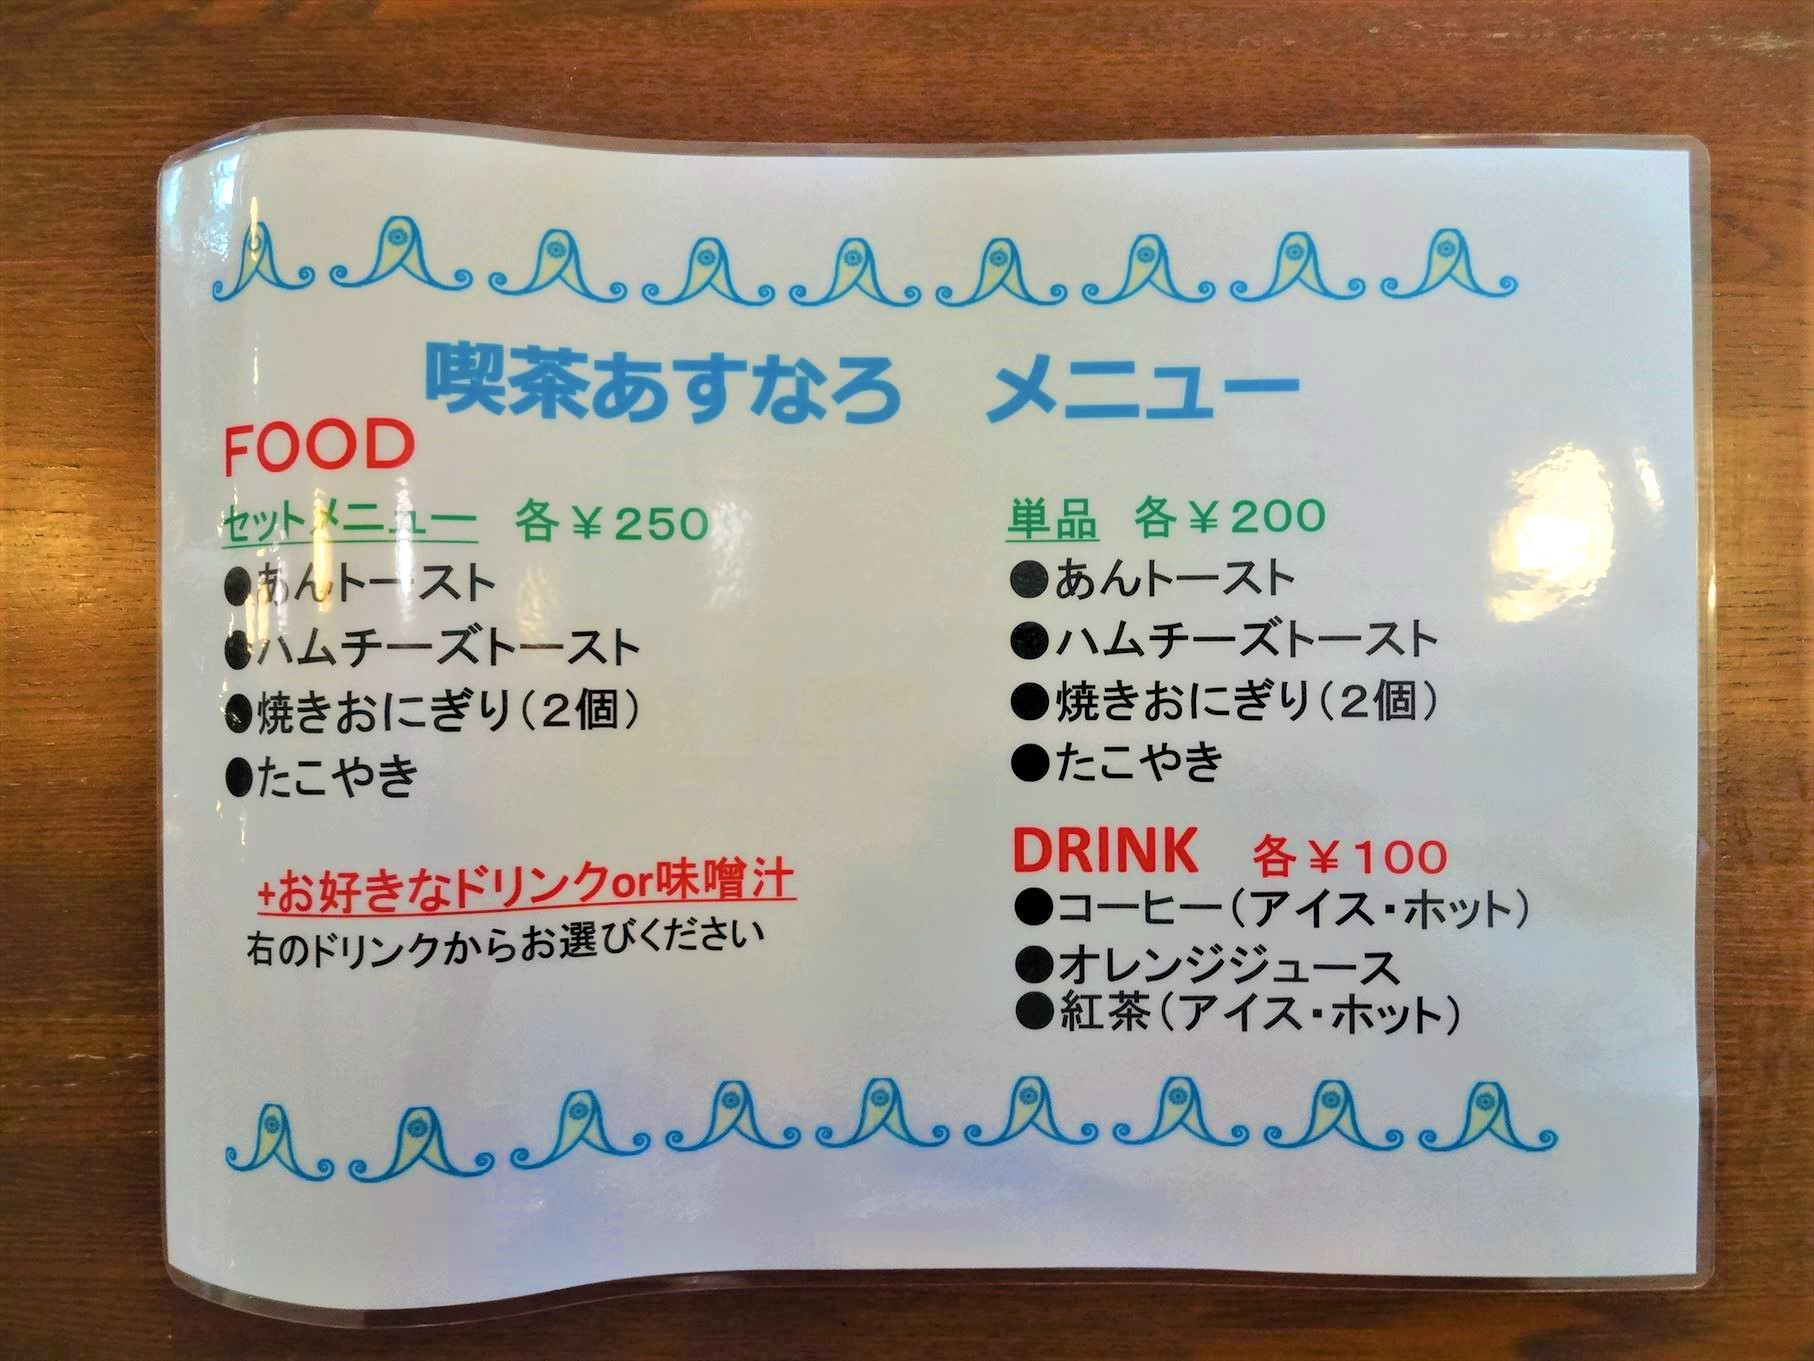 喫茶あすなろ　メニュー
FOOD
セットメニュー　各￥250
●あんトースト
●ハムチーズトースト
●焼きおにぎり（2個）
●たこやき
+お好きなドリンクor味噌汁
右のドリンクからお選びください
単品　各￥200
●あんトースト
●ハムチーズトースト
●焼きおにぎり（2個）
●たこやき
DRINK　各￥100
●コーヒー（アイス・ホット）
●オレンジジュース
●紅茶（アイス・ホット）